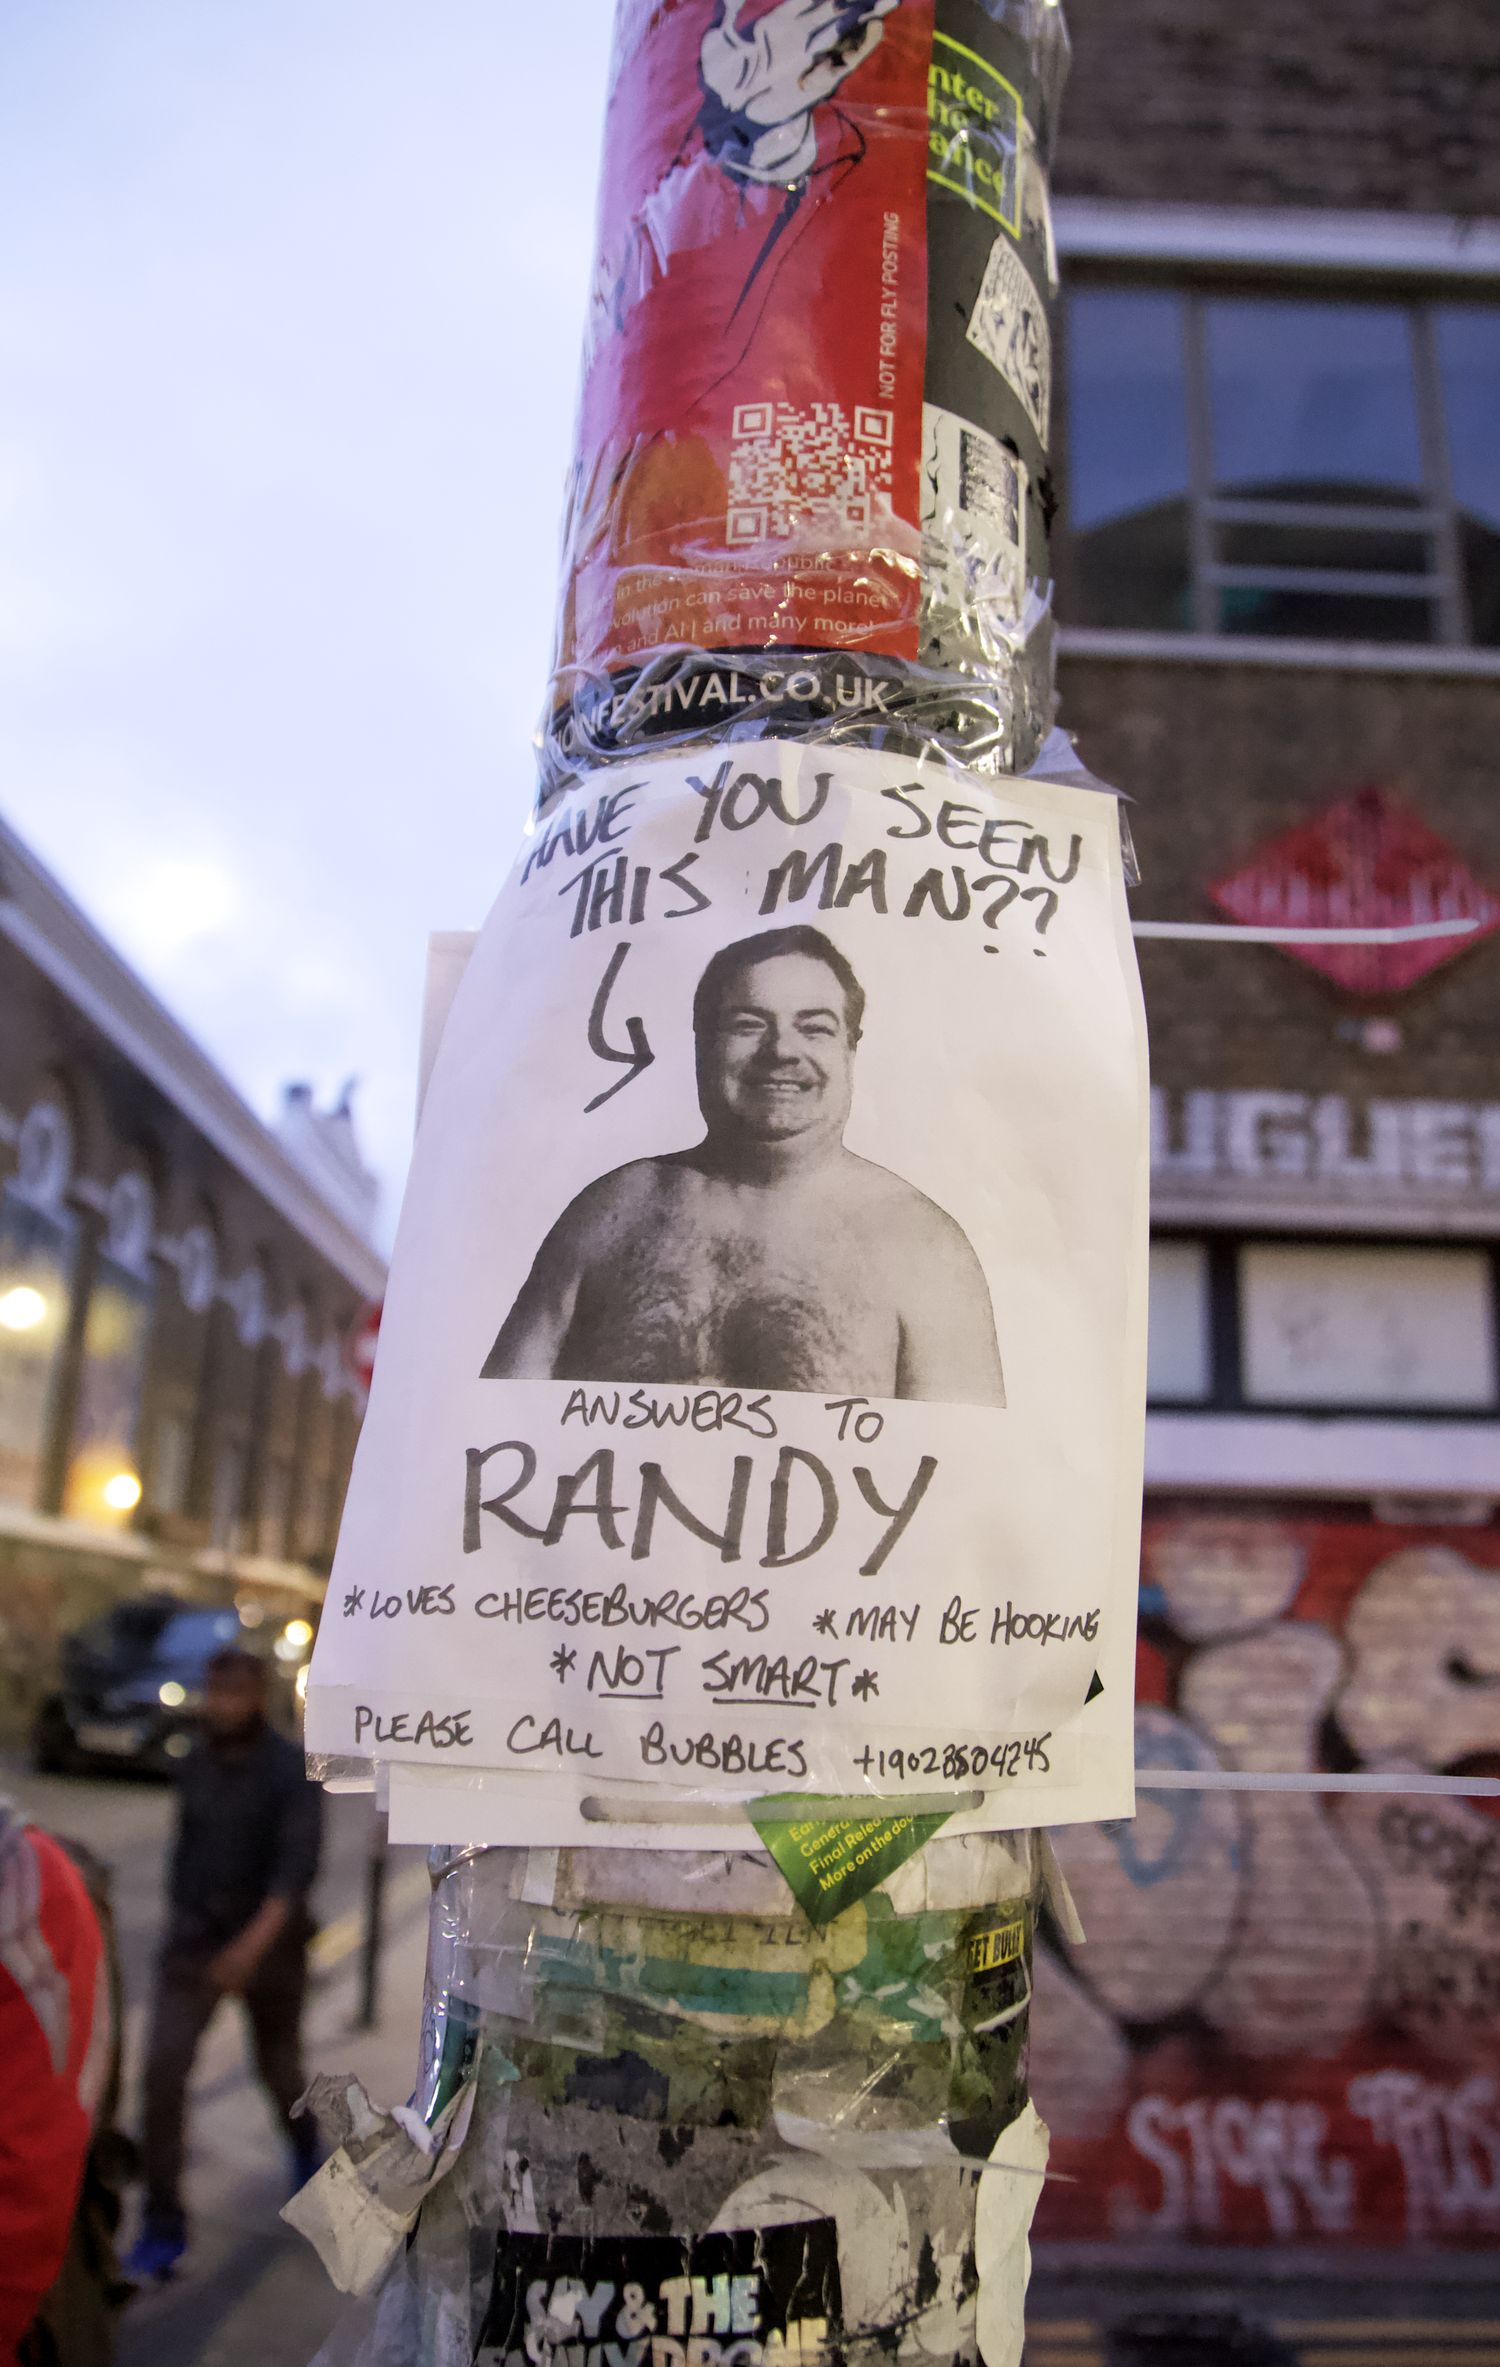 nter
he
ance
NOT FOR FLY POSTING
in the
olution can save the planet
and AI | and many more!
NFESTIVAL.CO.UK
HAVE YOU SEEN
THIS MAN??
ANSWERS TO
RANDY
*LOVES CHEESEBURGERS *MAY BE HOOKING
*NOT SMART*
PLEASE CALL BUBBLES +19023504245
General
Final Relea
More on the doo
ET BULLY
& THE
UGUE